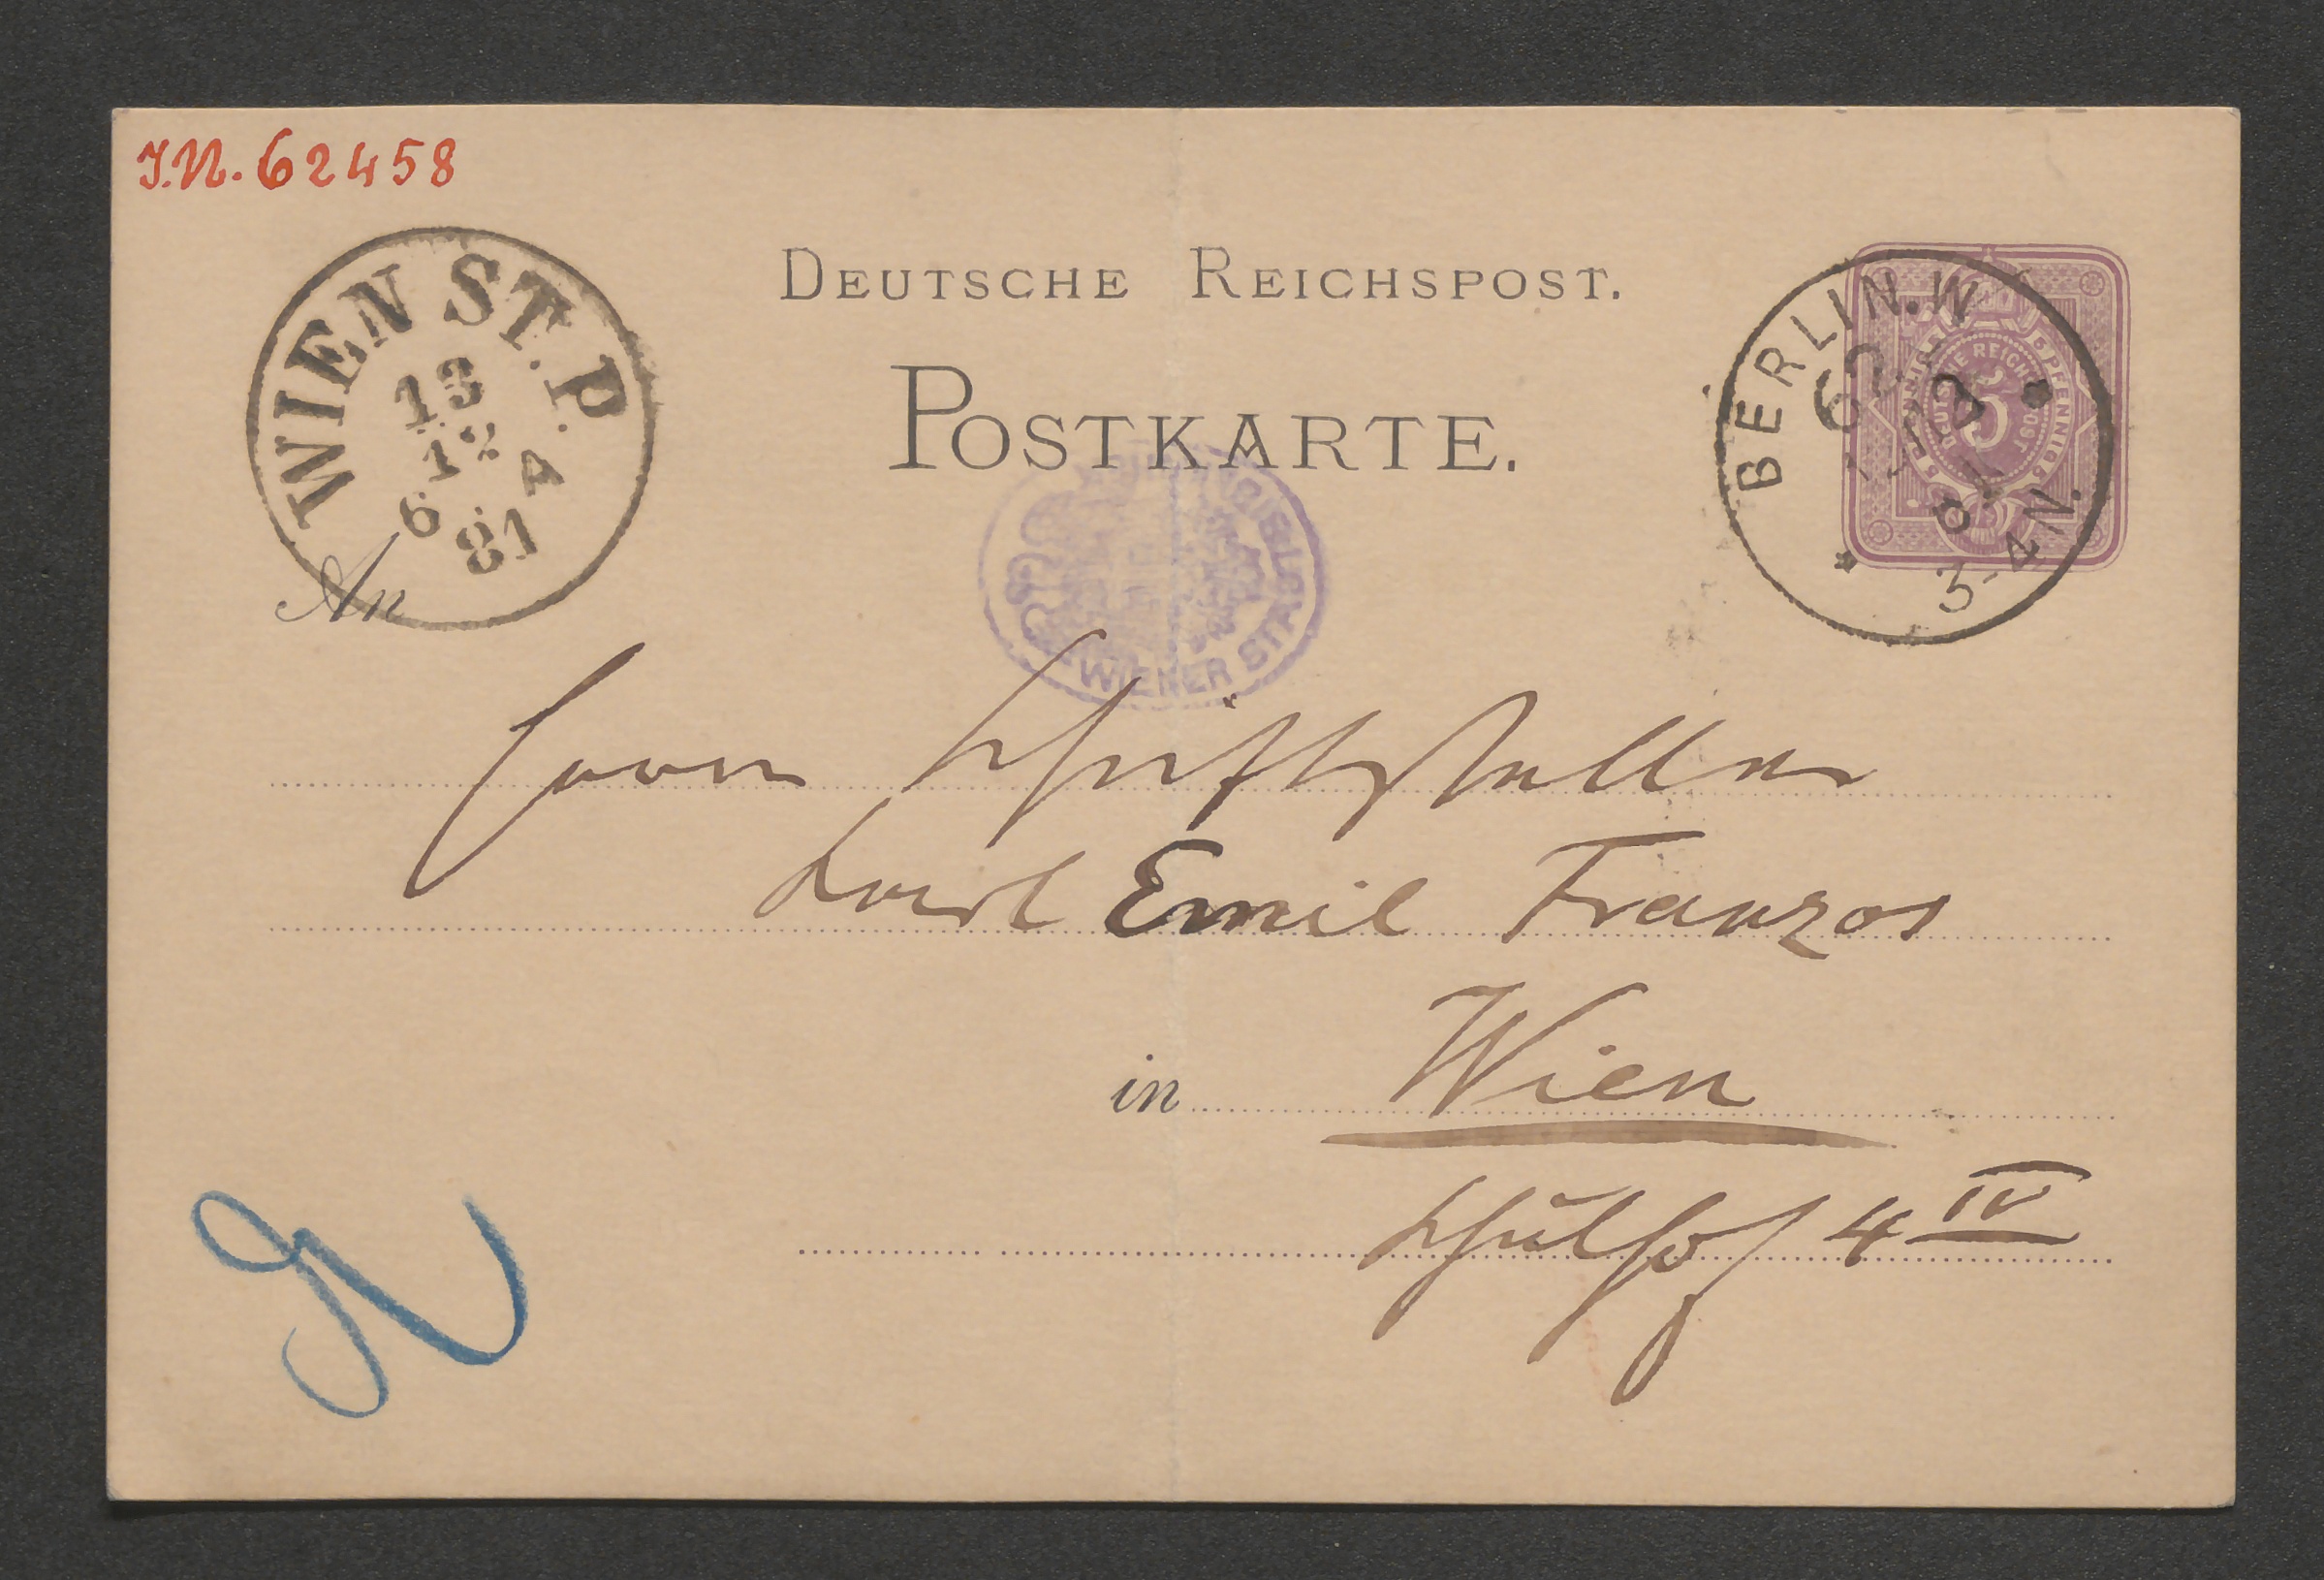 J.N. 62458
WIEN ST. P.
13
12
6 A
81
DEUTSCHE REICHSPOST.
POSTKARTE.
BERLIN. W
62
12
81
3-4 N.
DEUTSCHE REICHSPOST
5
FÜNF PFENNIG
WIENER STADT
An
Herrn Schriftsteller
Karl Emil Franzos
in Wien
Schulhof 4 IV